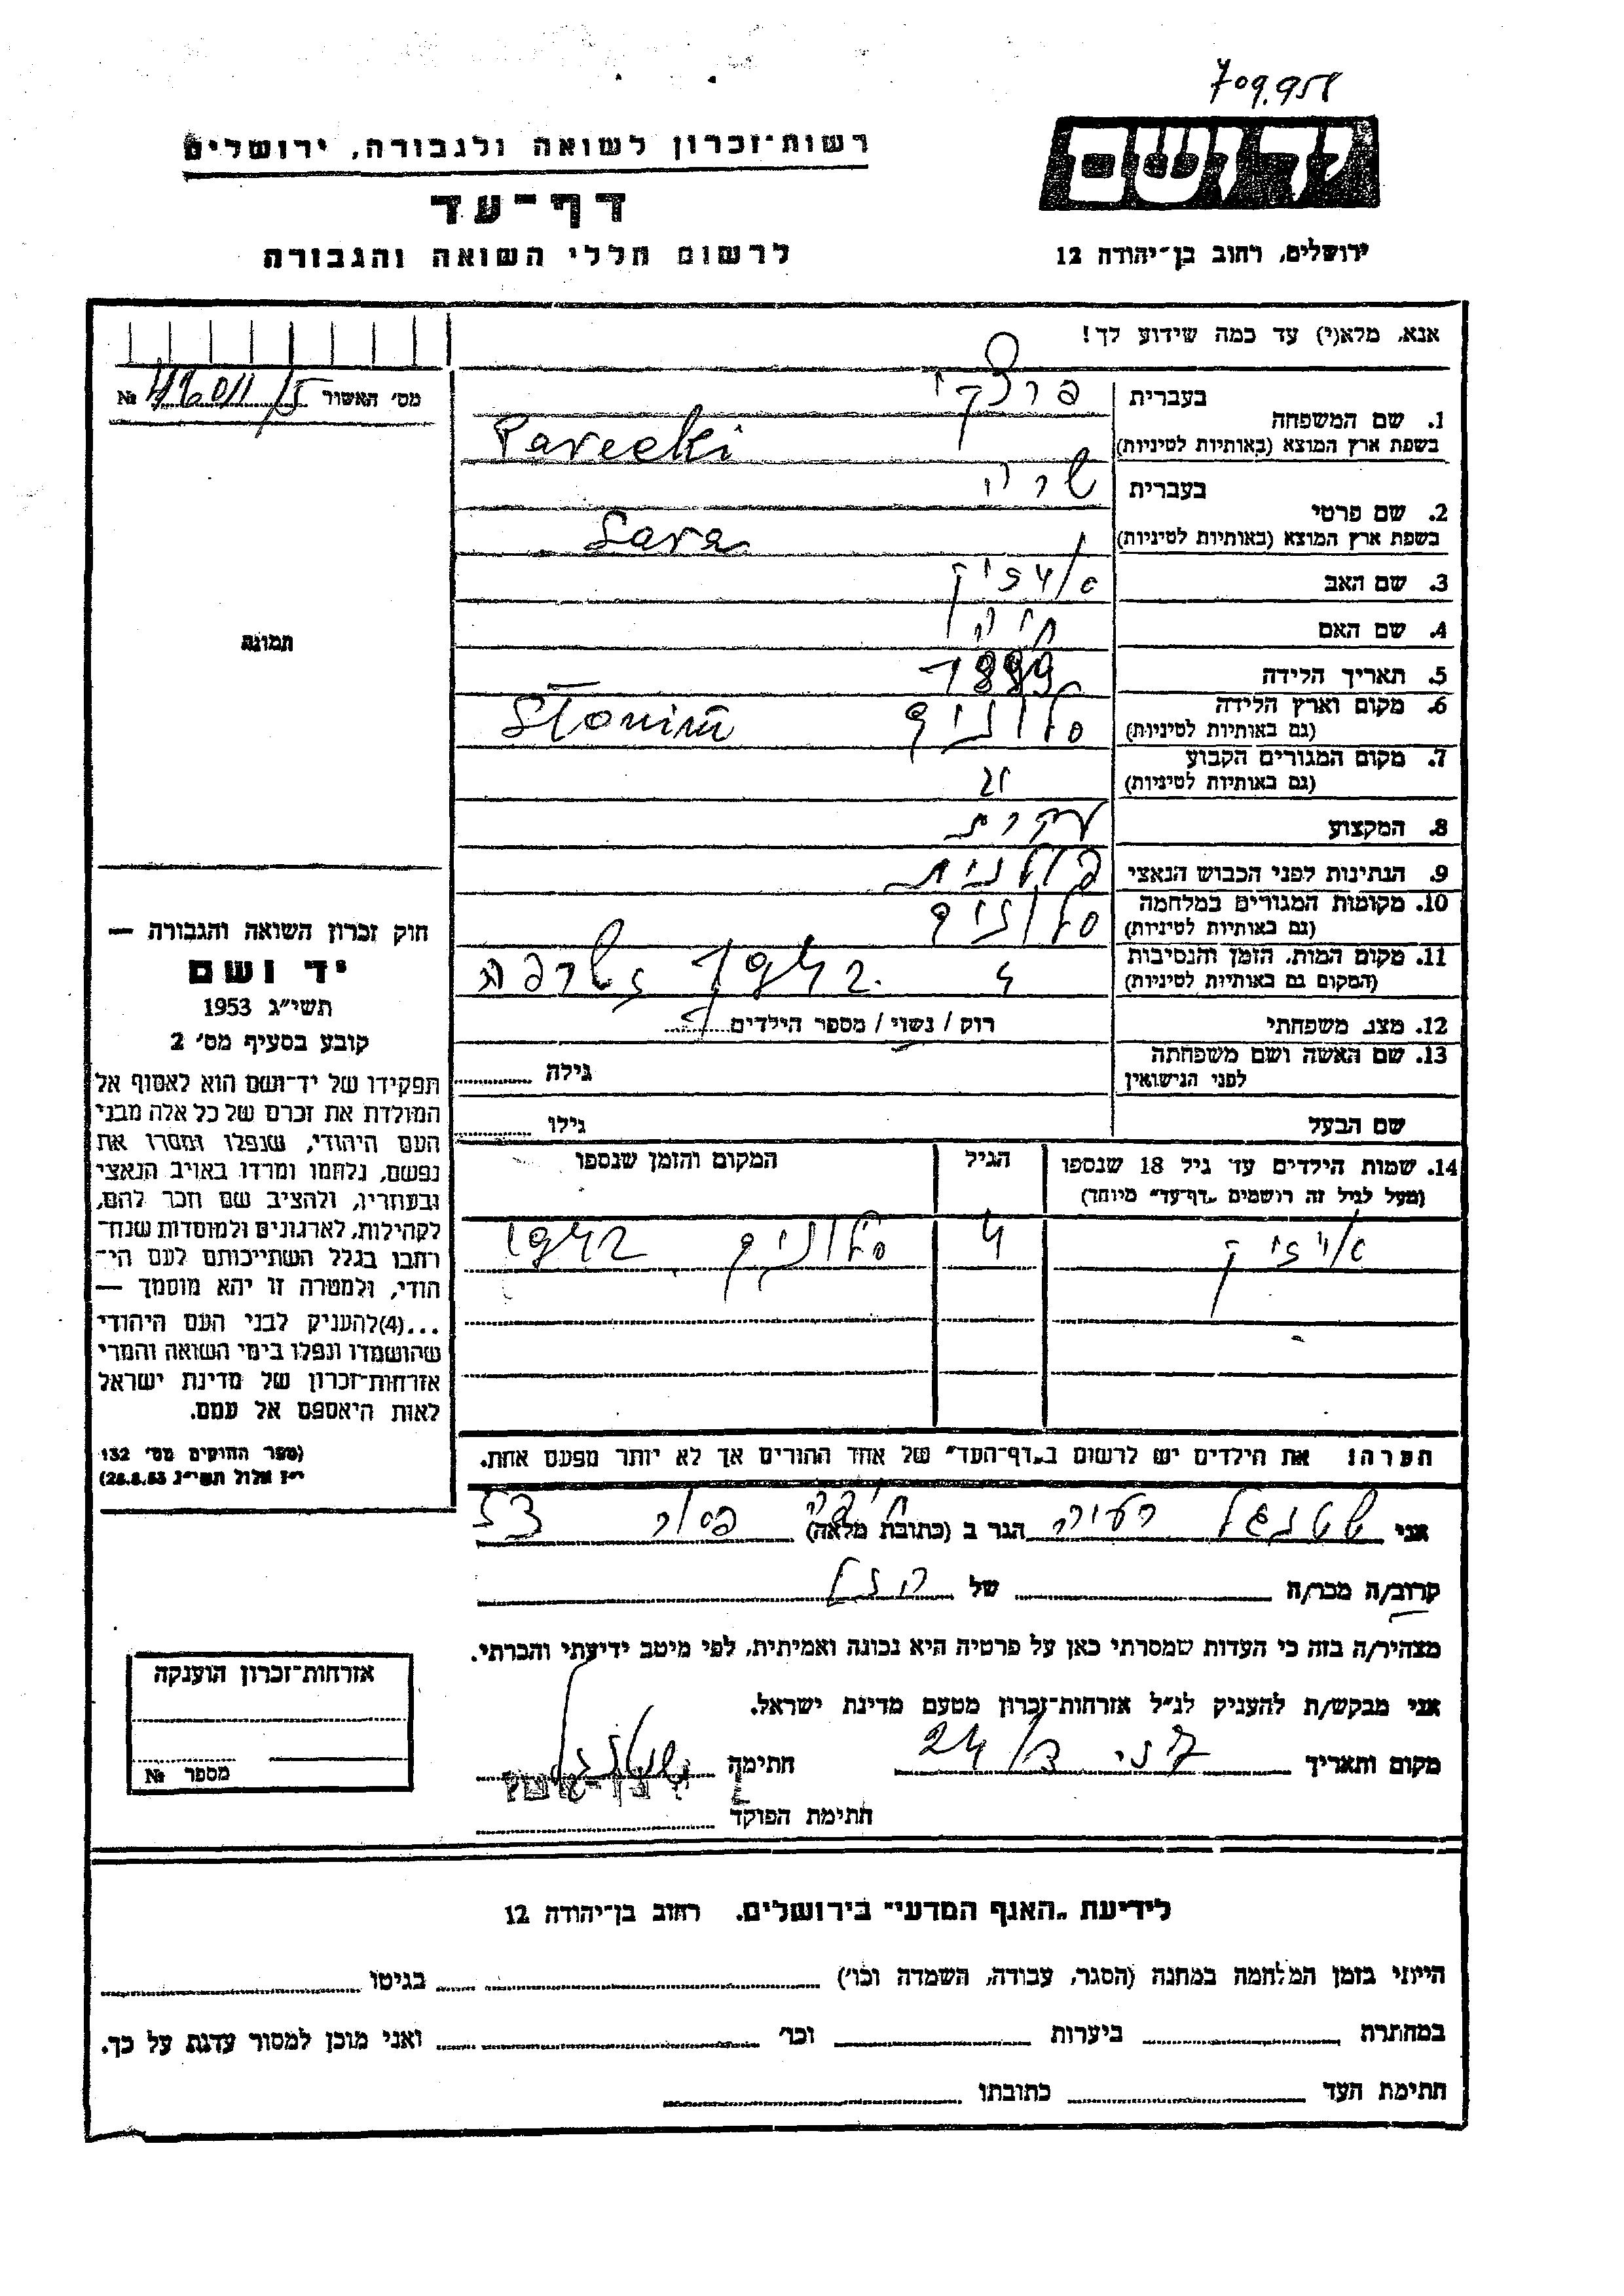 709.958
יד ושם
רשות־זכרון לשואה ולגבורה, ירושלים
דף־עד
לרשום חללי השואה והגבורה
ירושלים, רחוב בן־יהודה 12
אנא, מלא(י) עד כמה שידוע לך!
מס׳ האשור №
1. שם המשפחה
בעברית פרצקי
בשפת ארץ המוצא (באותיות לטיניות) Parecki
2. שם פרטי
בעברית שרה
בשפת ארץ המוצא (באותיות לטיניות) Sara
3. שם האב אייזיק
4. שם האם חיה
5. תאריך הלידה 1899
6. מקום וארץ הלידה סלונים Słonim
(גם באותיות לטיניות)
7. מקום המגורים הקבוע
(גם באותיות לטיניות)
8. המקצוע עקרת
9. הנתינות לפני הכבוש הנאצי פולנית
10. מקומות המגורים במלחמה סלונים
(גם באותיות לטיניות)
11. מקום המות, הזמן והנסיבות 1942 נשרפה
(המקום גם באותיות לטיניות)
12. מצב משפחתי רוק / נשוי / מספר הילדים
13. שם האשה ושם משפחתה
לפני הנישואין גילה
שם הבעל גילו
תמונה
חוק זכרון השואה והגבורה —
יד ושם
תשי״ג 1953
קובע בסעיף מס׳ 2
תפקידו של יד־ושם הוא לאסוף אל
המולדת את זכרם של כל אלה מבני
העם היהודי, שנפלו ומסרו את
נפשם, נלחמו ומרדו באויב הנאצי
ובעוזריו, ולהציב שם וזכר להם,
לקהילות, לארגונים ולמוסדות שנח־
רבו בגלל השתייכותם לעם הי־
הודי, ולמטרה זו יהא מוסמך —
...(4)להעניק לבני העם היהודי
שהושמדו ונפלו בימי השואה והמרי
אזרחות־זכרון של מדינת ישראל
לאות היאספם אל עמם.
(ספר החוקים מס׳ 132
י״ז אלול תשי״ג 28.8.53)
14. שמות הילדים עד גיל 18 שנספו הגיל המקום והזמן שנספו
(מעל לגיל זה רושמים „דף־עד״ מיוחד)
אייזיק 4 סלונים 1942
הערה: את הילדים יש לרשום ב„דף־העד״ של אחד ההורים אך לא יותר מפעם אחת.
אני הגר ב (כתובת מלאה) חיפה
קרוב/ה מכר/ה של
מצהיר/ה בזה כי העדות שמסרתי כאן על פרטיה היא נכונה ואמיתית, לפי מיטב ידיעתי והכרתי.
אני מבקש/ת להעניק לנ״ל אזרחות־זכרון מטעם מדינת ישראל.
מקום ותאריך חתימה
חתימת הפוקד
אזרחות־זכרון הוענקה
מספר №
לידיעת „האגף המדעי״ בירושלים, רחוב בן־יהודה 12
הייתי בזמן המלחמה במחנה (הסגר, עבודה, השמדה וכו׳) בגיטו
במחתרת ביערות וכו׳ ואני מוכן למסור עדות על כך.
חתימת העד כתובתו